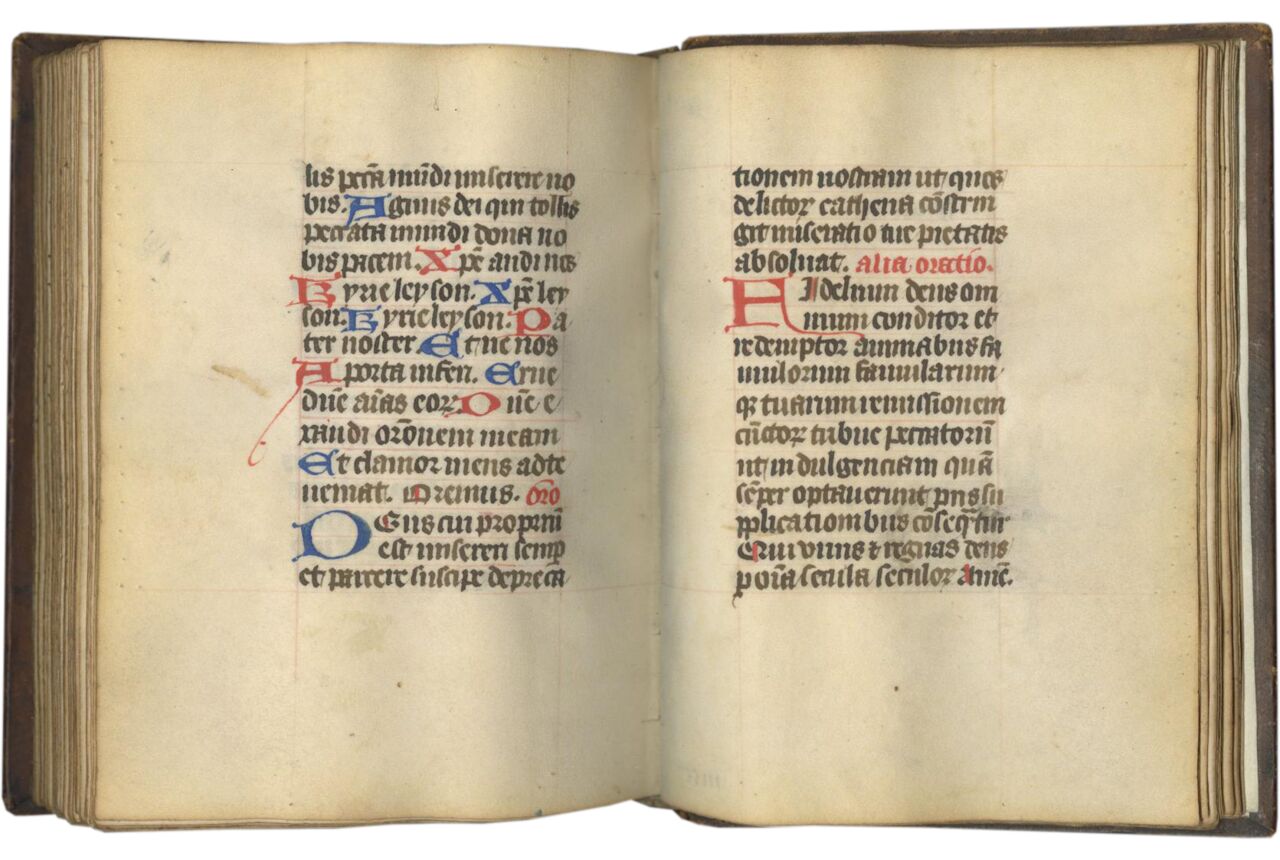 lis pctā mūdi miserere no
bis. Agnus dei qui tollis
peccata mundi dona no
bis pacem. Xpē audi nos
Kyrieleyson. Xpē ley
son. Kyrieleyson. Pa
ter noster. Et ne nos
A porta inferi. Erue
dūe aīas eorꝝ Dūe e
xaudi orōnem meam
Et clamor meus ad te
ueniat. Oremus. oro
DEus cui propriū
est misereri semp
et parcere suscipe depreca
tionem nostram ut quos
delictoꝝ cathena cōstrin
git miseratio tue pietatis
absoluat. alia oratio.
FIdelium deus om
nium conditor et
redemptor animabus fa
mulorum famularum
qꝫ tuarum remissionem
cūctoꝝ tribue peccatorū
ut indulgenciam quā
sēper optauerunt pijs su
pplicationibus cōseqūtur
Qui viuis ⁊ regnas deus
p oīa secula seculoꝝ Amē.